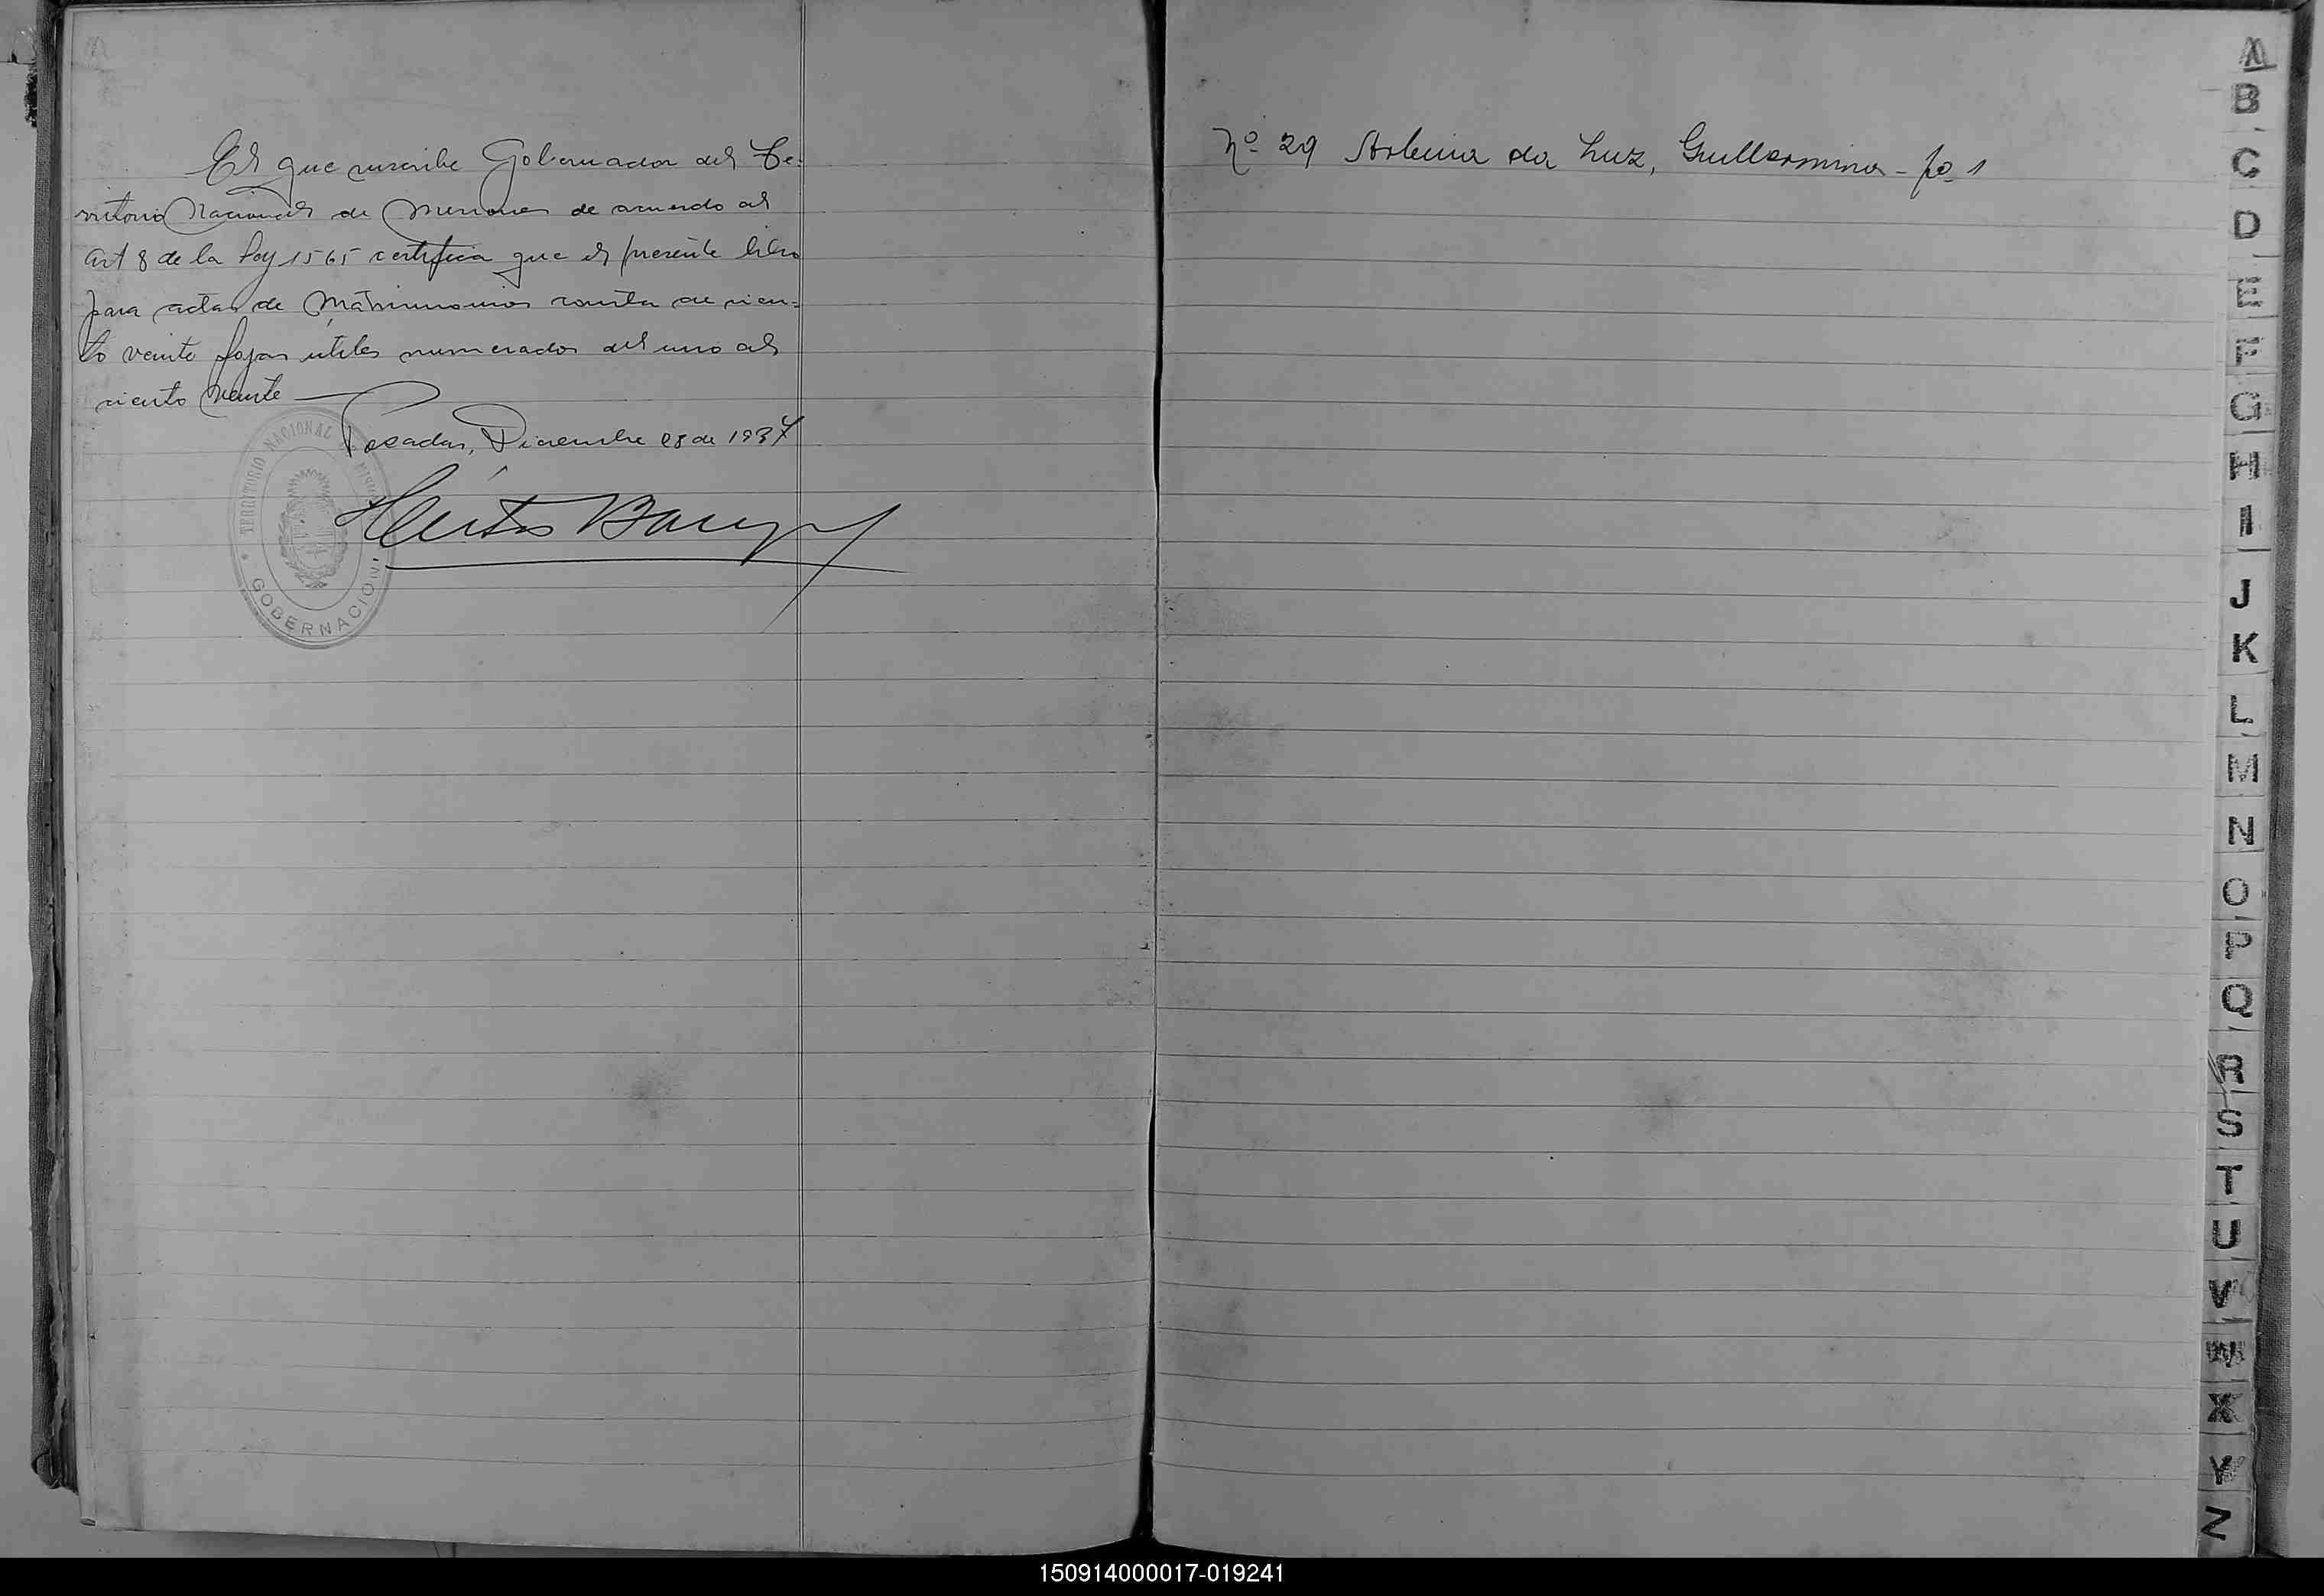 El que suscribe Gobernador del Te-
rritorio Nacional de Misiones de acuerdo al
art 8 de la Ley 1565 certifica que el presente libro
para actas de Matrimonios consta de cien-
to veinte fojas utiles numerados del uno al
ciento veinte
Posadas, Diciembre 28 de 1937
TERRITORIO NACIONAL
GOBERNACION
Nº 29 da Luz, Guillermina - fo 1
A
B
C
D
E
F
G
H
I
J
K
L
M
N
O
P
Q
R
S
T
U
V
W
X
Y
Z
150914000017-019241